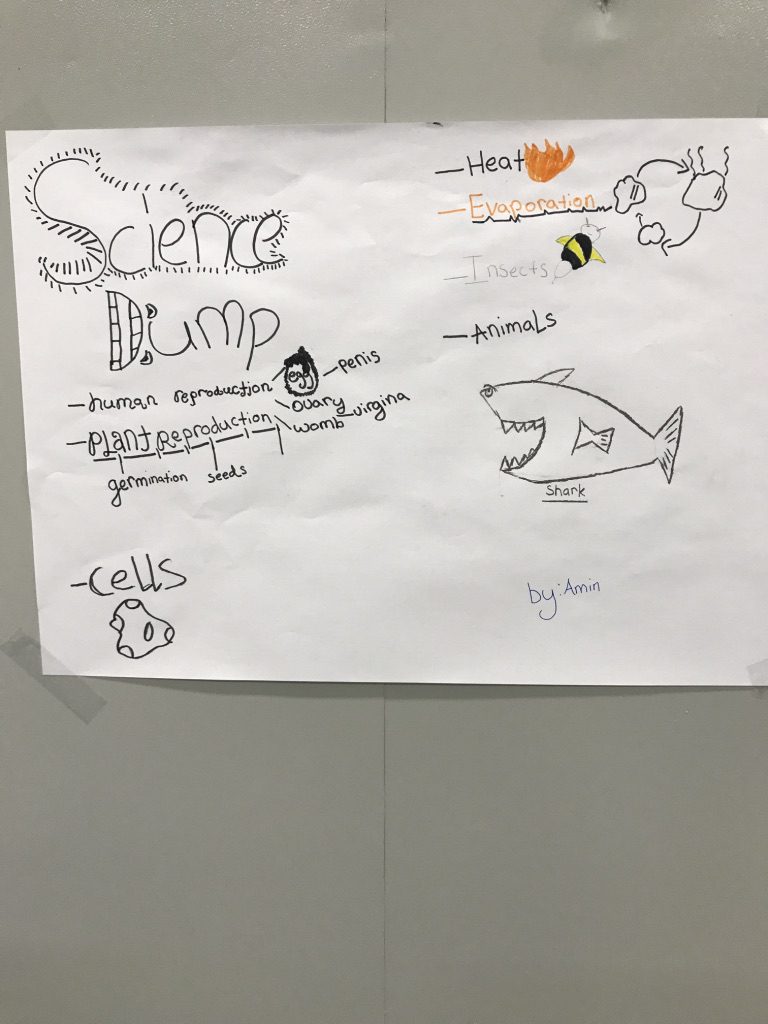 Science
Dump
- human reproduction
egg
penis
ovary
womb
virgina
- Plant Reproduction
germination
seeds
- cells
- Heat
- Evaporation
- Insects
- Animals
Shark
by: Amin